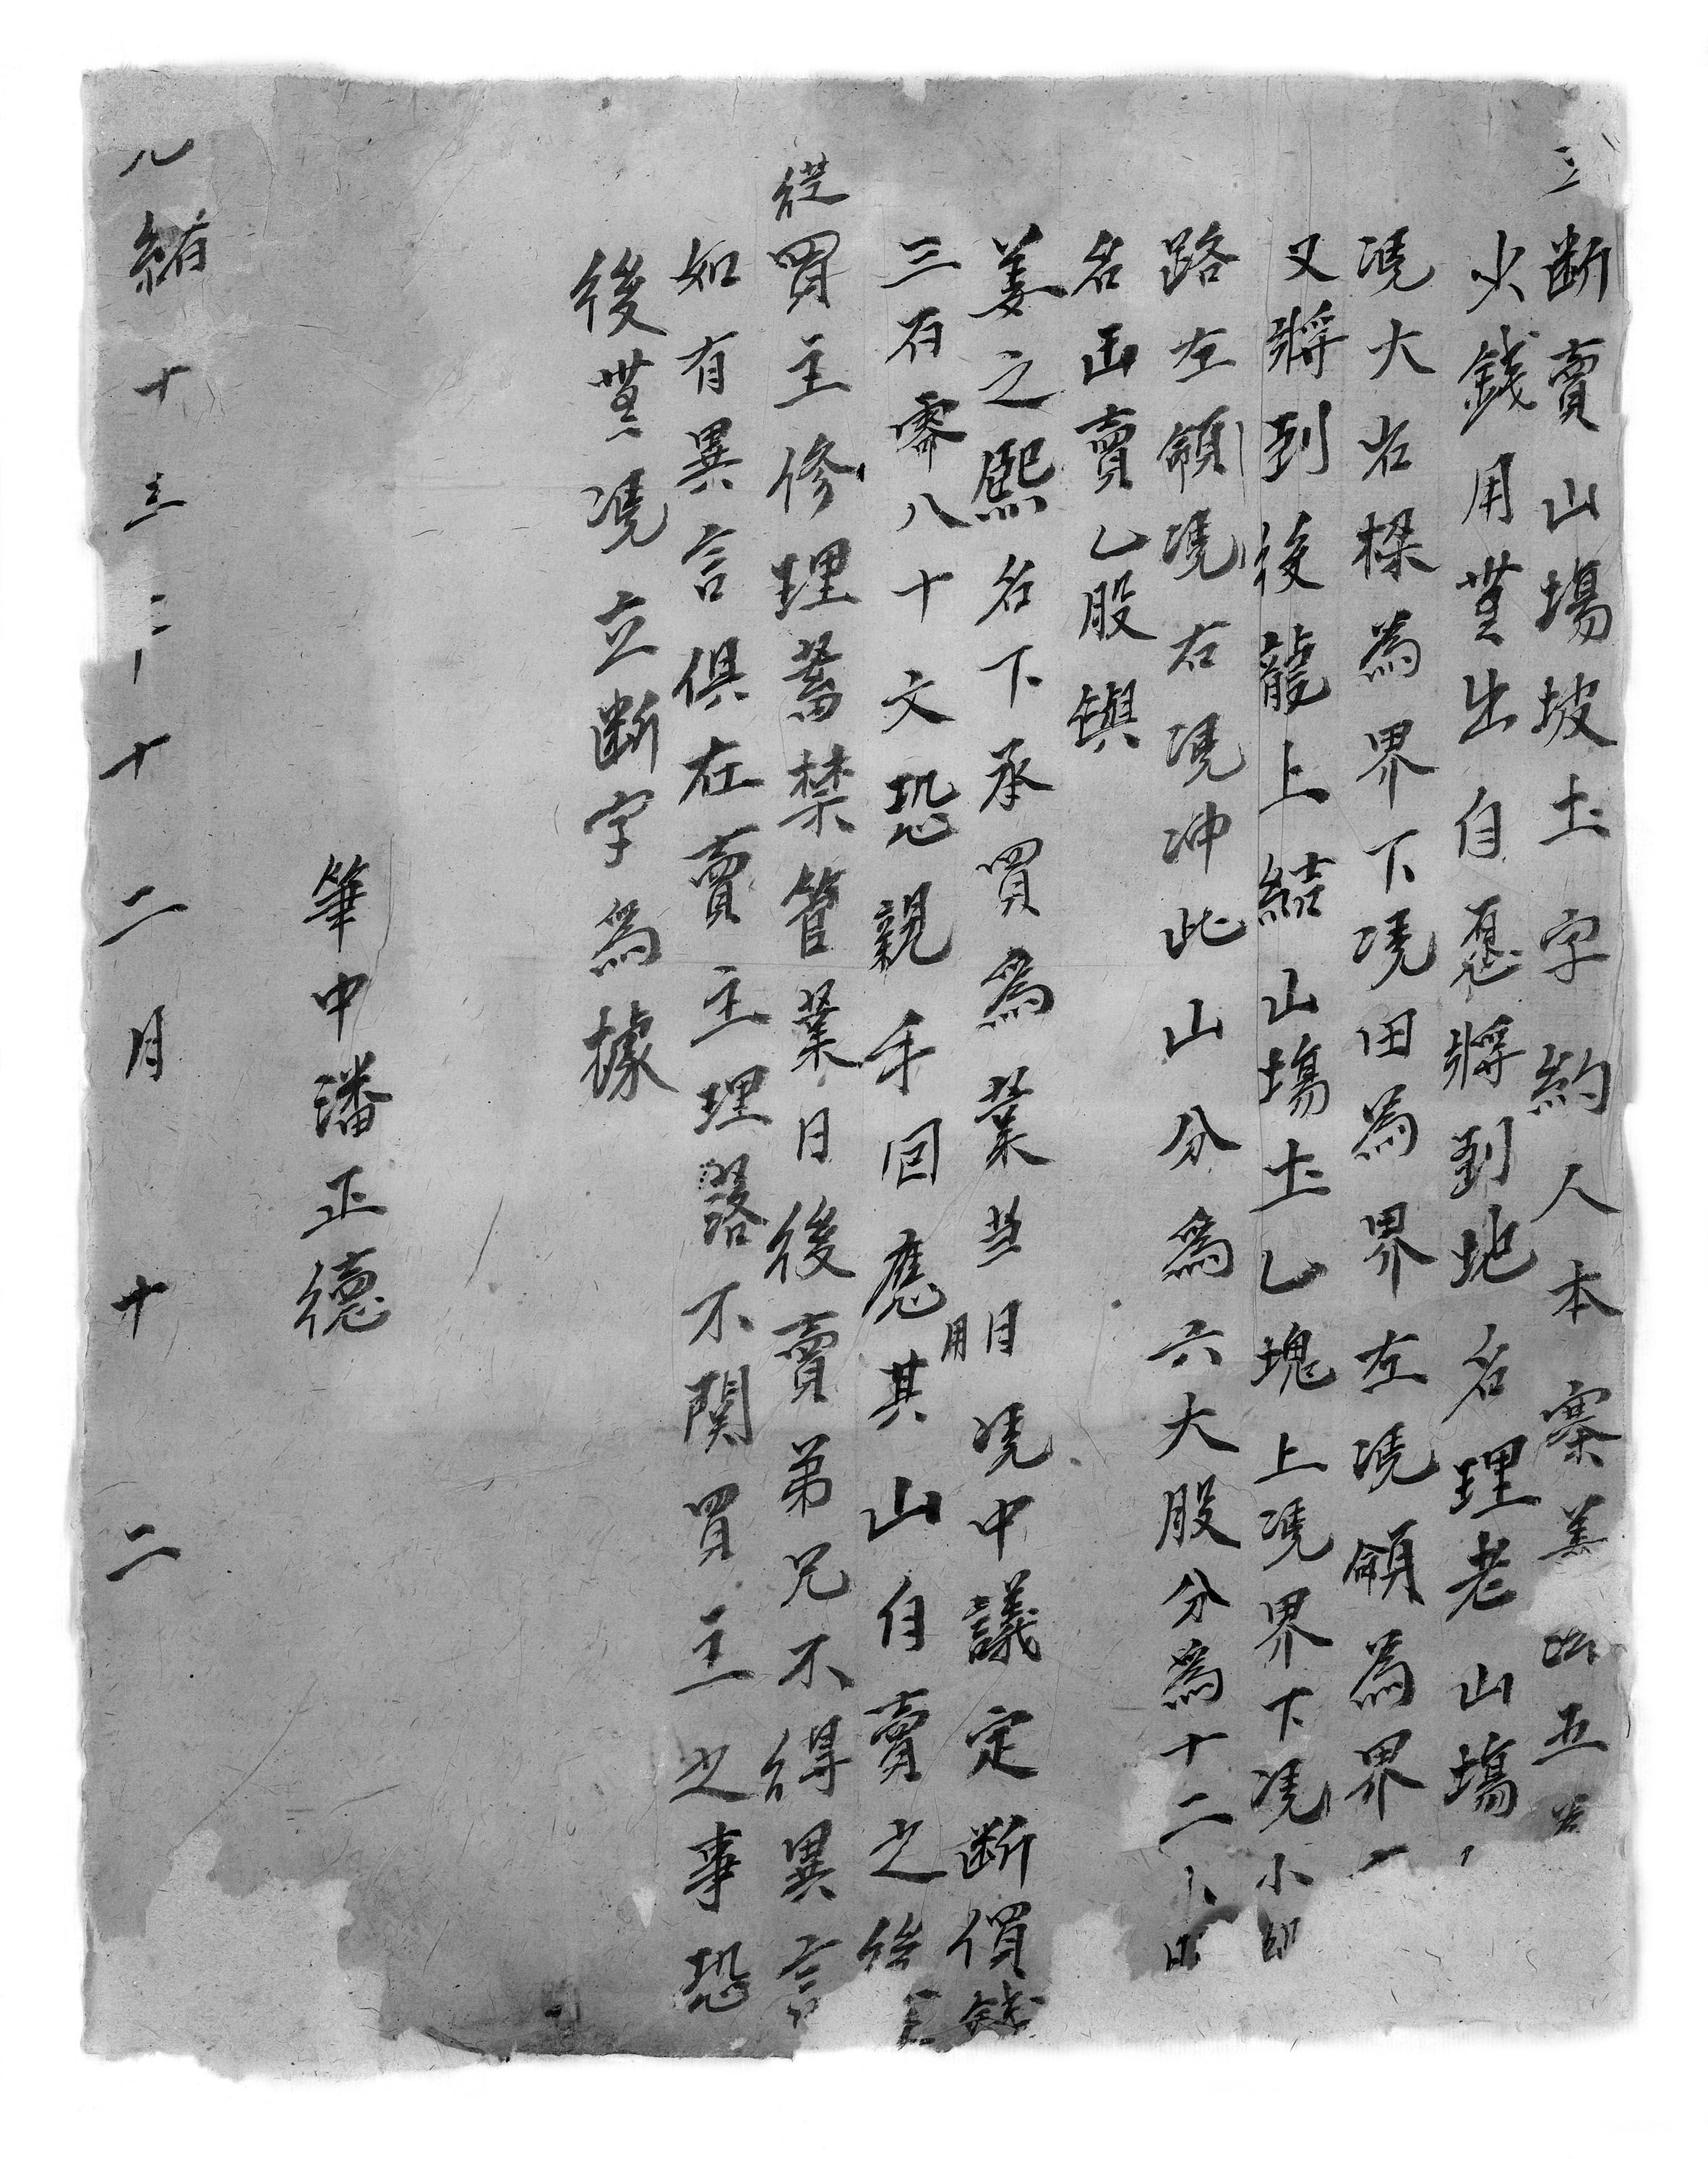 立断賣山塲坡土字約人本寨姜 五
少錢用無出自愿將到地名理老山塲
凴大岩樑為界下凴田為界左凴領為界
又將到後龍上結山塲土乚塊上凴界下凴小
路左領凴右凴冲此山分為六大股分為十二小
名出賣乚股與
姜之熙名下承買為業当日凴中議定断價錢
三百零八十文恐親手回應用其山自賣之後
從買主修理蓄禁管業日後賣弟兄不得異言
如有異言俱在賣主理落不関買主之事恐
後無凴立断字為據
筆中潘正德
緒十三 十二月十二